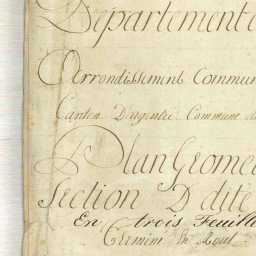 Département
Arrondissement Commun
Canton D'argentré Commune d
Plan Geome
Section D dite
En trois Feuill